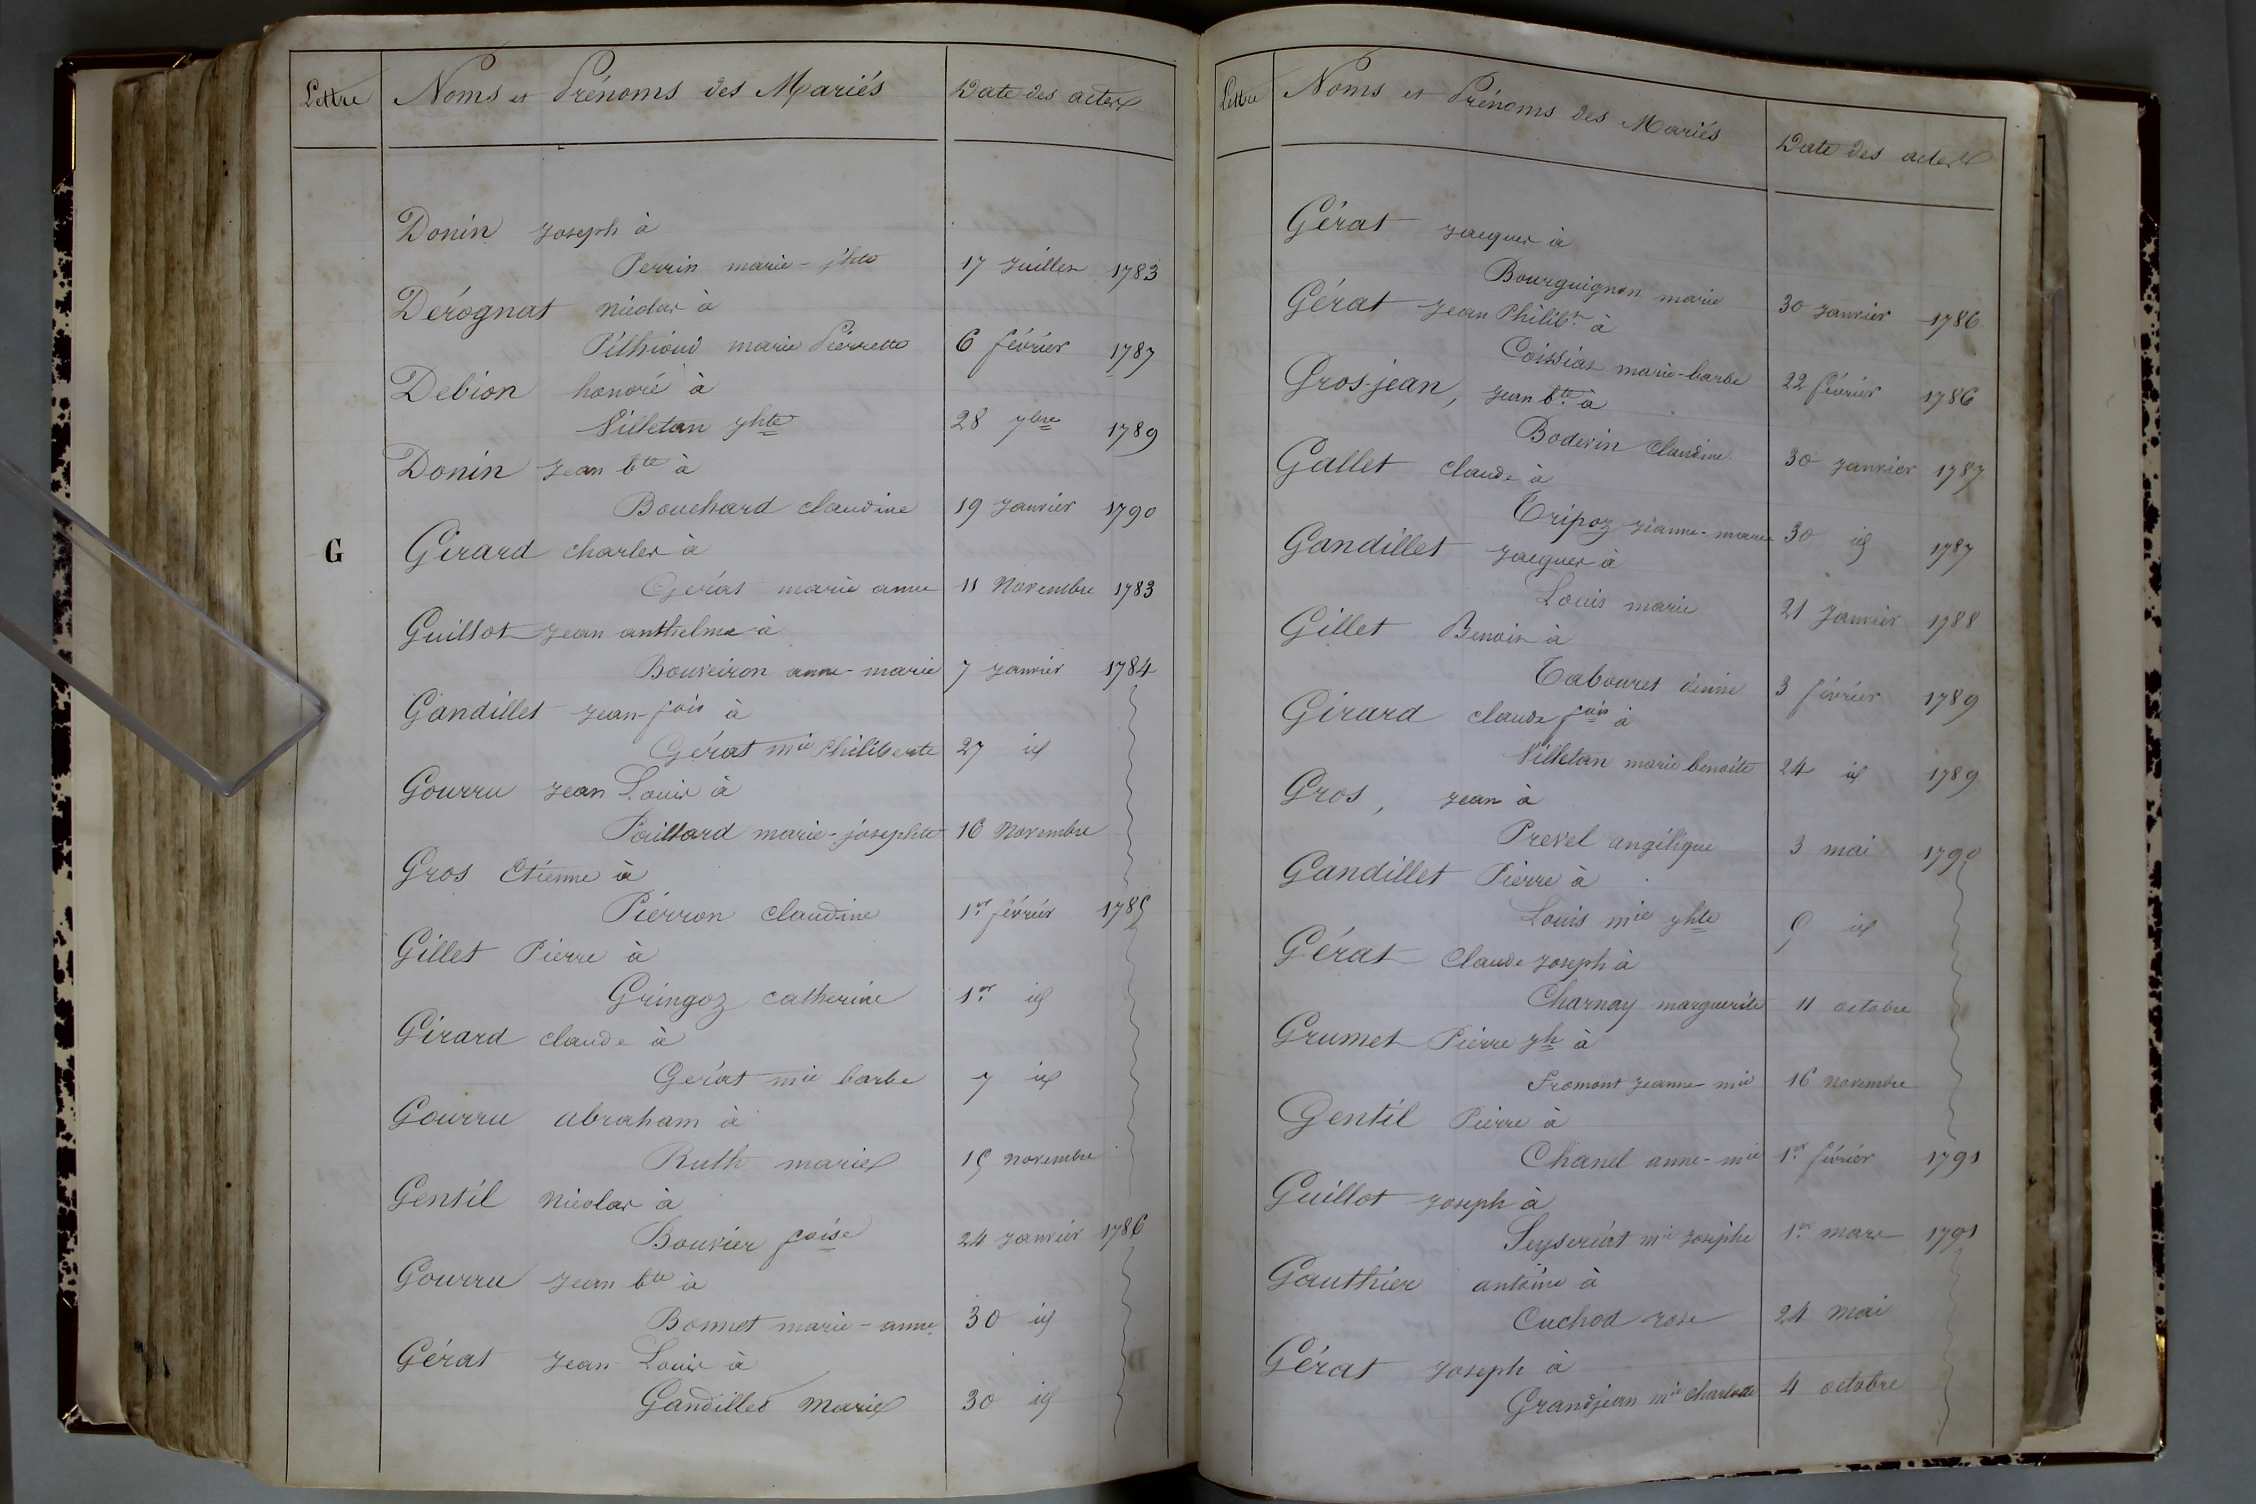 Lettre Noms et Prénoms des Mariés Date des actes
Donin Joseph à
Perrin marie-jhte 17 Juillet 1783
Dérognat Nicolas à
Pilhioud marie Pierrette 6 février 1787
Debion honoré à
Villetan jhte 28 7bre 1789
Donin Jean bte à
Bouchard claudine 19 Janvier 1790
G Girard charles à
Gérat marie anne 11 Novembre 1783
Guillot Jean anthelme à
Bouveiron anne-marie 7 Janvier 1784
Gandillet Jean-fois à
Gérat mie Philiberte 27 id
Gourru Jean Louis à
Paillard marie-josephte 16 Novembre
Gros Etienne à
Pierron claudine 1er février 1785
Gillet Pierre à
Gringoz catherine 1er id
Girard claude à
Gérat mie barbe 7 id
Gourru abraham à
Ruth marie 15 novembre
Gentil Nicolas à
Bouvier foise 24 Janvier 1786
Gourru Jean bte à
Bonnet marie-anne 30 id
Gérat Jean Louis à
Gandillet Marie 30 id
Lettre Noms et Prénoms des Mariés Date des actes
Gérat Jacques à
Bourguignon marie 30 Janvier 1786
Gérat Jean Philibt à
Coissiat marie-barbe 22 février 1786
Gros-jean, Jean bte à
Boderin claudine 30 Janvier 1787
Gallet claude à
Tripoz Jeanne-marie 30 id 1787
Gandillet Jacques à
Louis marie 21 Janvier 1788
Gillet Benoit à
Tabouret denise 3 février 1789
Girard claude fois à
Villetan marie benoite 24 id 1789
Gros, Jean à
Prevel angélique 3 mai 1790
Gandillet Pierre à
Louis mie jhte 5 id
Gérat Claude Joseph à
Charnay marguerite 11 octobre
Grumet Pierre jh à
Fromont Jeanne-mie 16 novembre
Gentil Pierre à
Chanel anne-mie 1er février 1791
Guillot Joseph à
Seyseriat mie Josephe 1er mars 1791
Gauthier antoine à
Cuchod rose 24 Mai
Gérat Joseph à
Grandjean mie charlotte 4 octobre